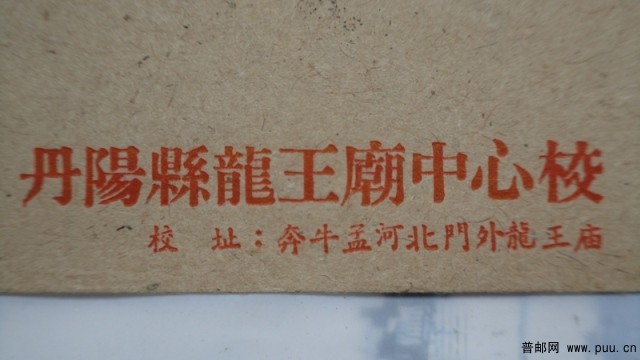 丹陽縣龍王廟中心校
校 址：奔牛孟河北門外龍王庙
普邮网 www.puu.cn